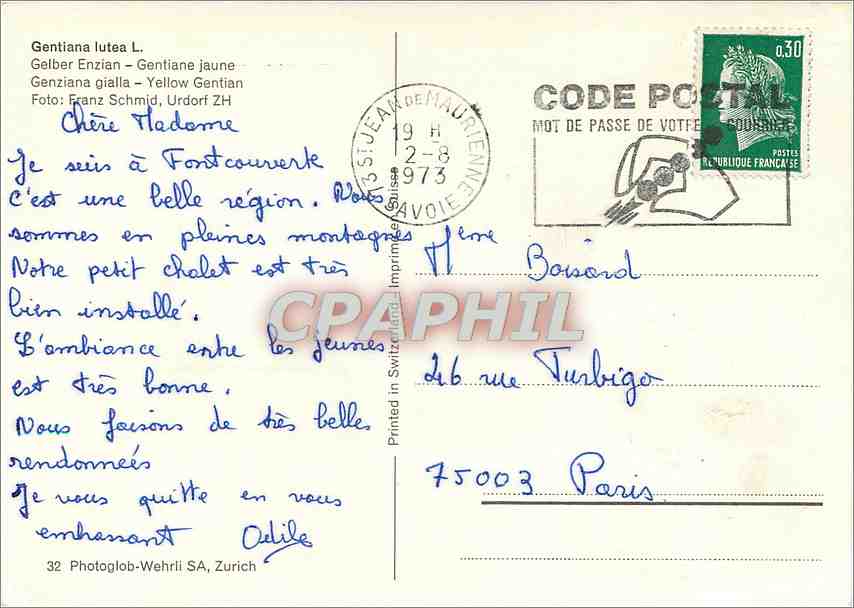 Gentiana lutea L.
Gelber Enzian – Gentiane jaune
Genziana gialla – Yellow Gentian
Foto: Franz Schmid, Urdorf ZH
Chère Madame
Je suis à Fontcouverte
C'est une belle région. Nous
sommes en pleines montagnes
Notre petit chalet est très
bien installé.
L'ambiance entre les jeunes
est très bonne.
Nous faisons de très belles
rendonneés
Je vous quitte en vous
embrassant Odile
32 Photoglob-Wehrli SA, Zurich
Printed in Switzerland - Imprimé en Suisse
73 ST JEAN DE MAURIENNE
19 H
2-8
1973
SAVOIE
CODE POSTAL
MOT DE PASSE DE VOTRE COURRIER
0,30
POSTES
REPUBLIQUE FRANÇAISE
Mème Boisard
46 rue Turbigo
75003 Paris
CPAPHIL